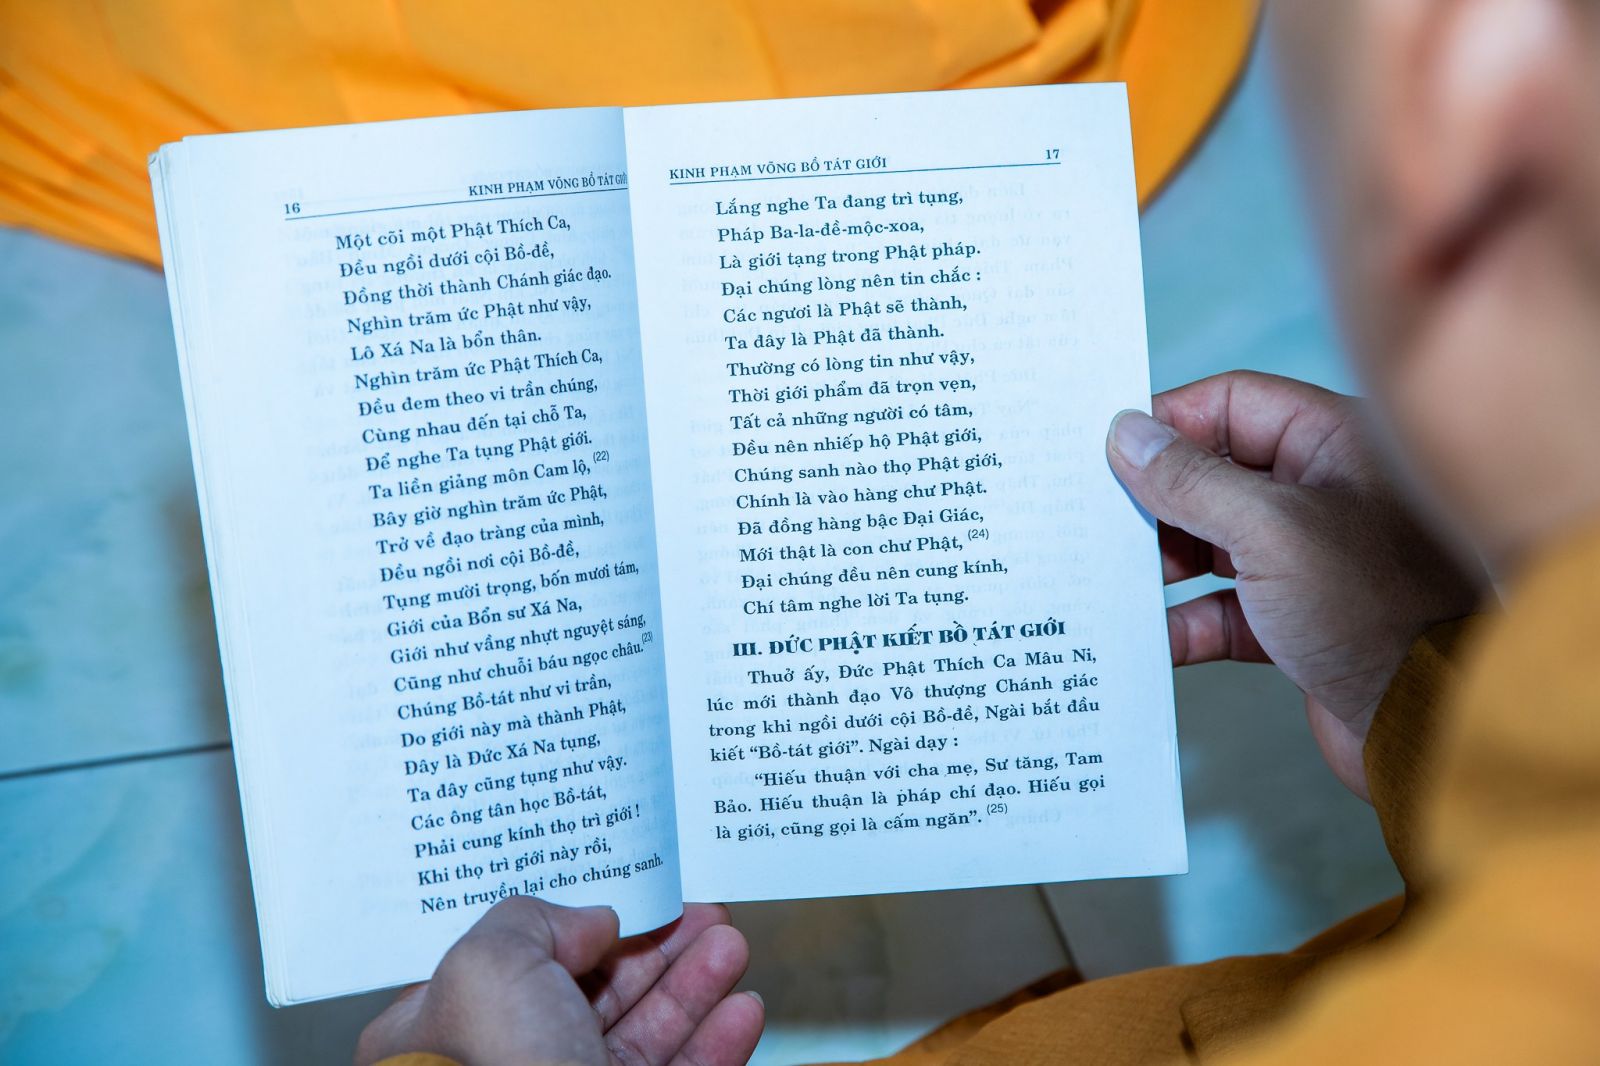 16
KINH PHẠM VÕNG BỒ TÁT GIỚI
Một cõi một Phật Thích Ca,
Đều ngồi dưới cội Bồ-đề,
Đồng thời thành Chánh giác đạo.
Nghìn trăm ức Phật như vậy,
Lô Xá Na là bổn thân.
Nghìn trăm ức Phật Thích Ca,
Đều đem theo vi trần chúng,
Cùng nhau đến tại chỗ Ta,
Để nghe Ta tụng Phật giới.
Ta liền giảng môn Cam lộ, (22)
Bây giờ nghìn trăm ức Phật,
Trở về đạo tràng của mình,
Đều ngồi nơi cội Bồ-đề,
Tụng mười trọng, bốn mươi tám,
Giới của Bổn sư Xá Na,
Giới như vầng nhựt nguyệt sáng,
Cũng như chuỗi báu ngọc châu. (23)
Chúng Bồ-tát như vi trần,
Do giới này mà thành Phật,
Đây là Đức Xá Na tụng,
Ta đây cũng tụng như vậy.
Các ông tân học Bồ-tát,
Phải cung kính thọ trì giới !
Khi thọ trì giới này rồi,
Nên truyền lại cho chúng sanh.
KINH PHẠM VÕNG BỒ TÁT GIỚI
17
Lắng nghe Ta đang trì tụng,
Pháp Ba-la-đề-mộc-xoa,
Là giới tạng trong Phật pháp.
Đại chúng lòng nên tin chắc :
Các ngươi là Phật sẽ thành,
Ta đây là Phật đã thành.
Thường có lòng tin như vậy,
Thời giới phẩm đã trọn vẹn,
Tất cả những người có tâm,
Đều nên nhiếp hộ Phật giới,
Chúng sanh nào thọ Phật giới,
Chính là vào hàng chư Phật.
Đã đồng hàng bậc Đại Giác,
Mới thật là con chư Phật, (24)
Đại chúng đều nên cung kính,
Chí tâm nghe lời Ta tụng.
III. ĐỨC PHẬT KIẾT BỒ TÁT GIỚI
Thuở ấy, Đức Phật Thích Ca Mâu Ni,
lúc mới thành đạo Vô thượng Chánh giác
trong khi ngồi dưới cội Bồ-đề, Ngài bắt đầu
kiết “Bồ-tát giới”. Ngài dạy :
“Hiếu thuận với cha mẹ, Sư tăng, Tam
Bảo. Hiếu thuận là pháp chí đạo. Hiếu gọi
là giới, cũng gọi là cấm ngăn”. (25)